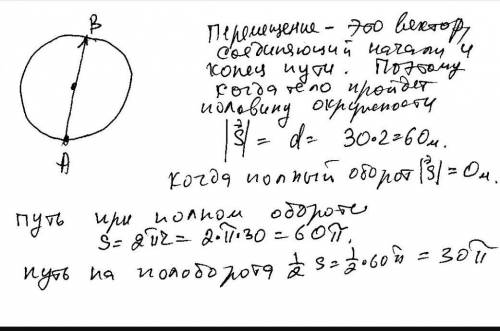 B
A
Перемещение – это вектор,
соединяющий начали и
конец пути. Поэтому
когда тело пройдет
половину окружности
|S⃗| = d = 30·2=60м.
когда полный оборот |S⃗|=0м.
путь при полном обороте
S= 2πr = 2·π·30 = 60π.
путь на полоборота ½ S = ½·60π = 30π